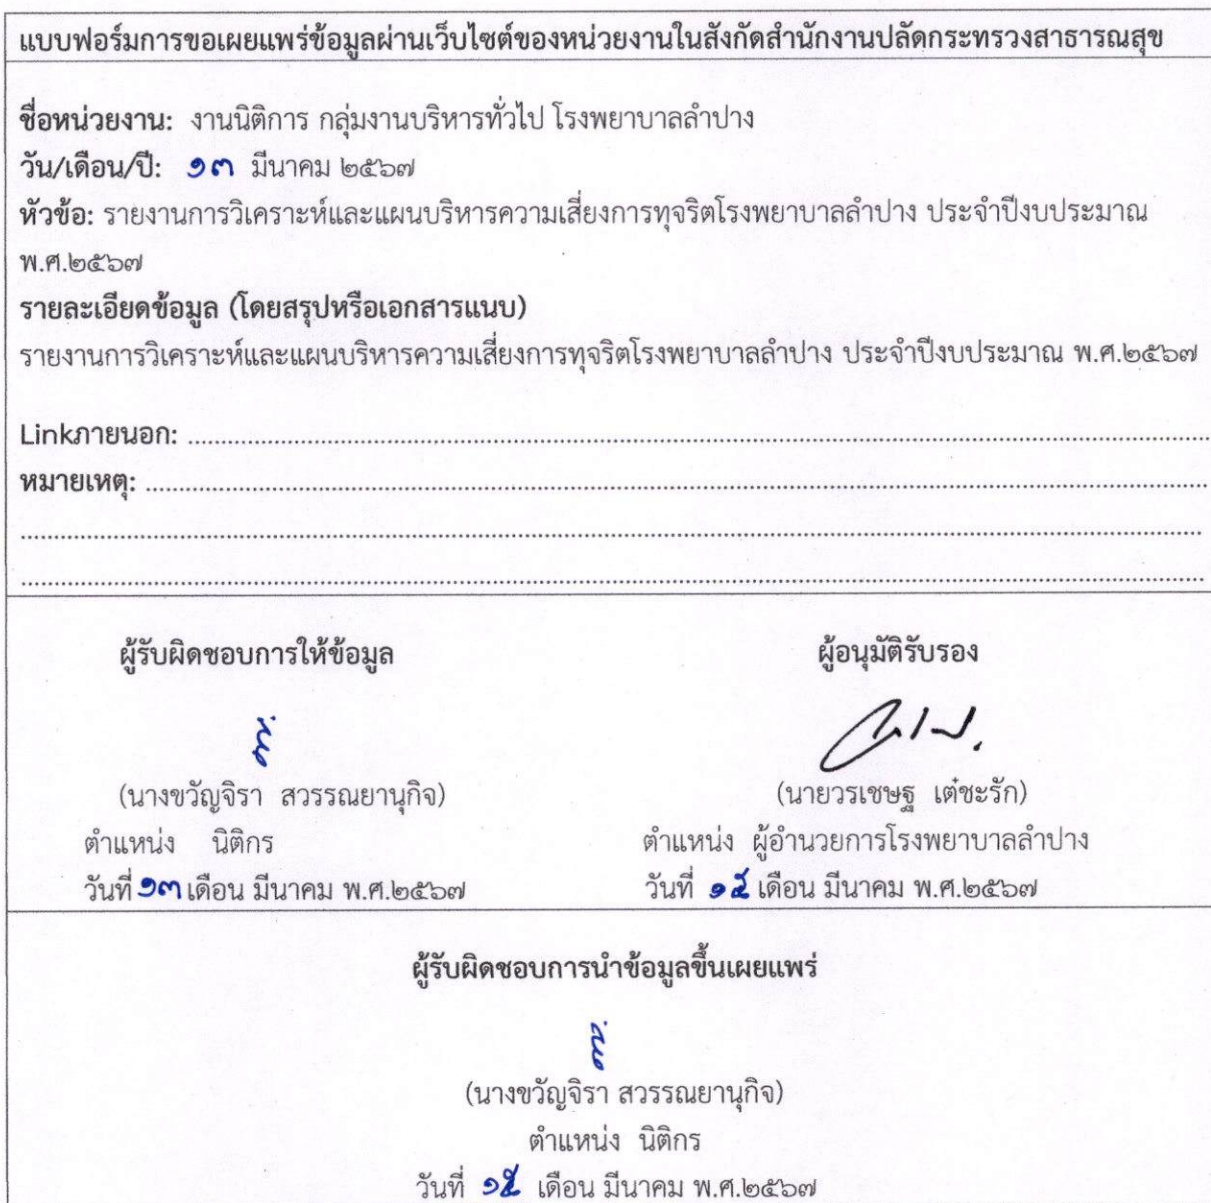 แบบฟอร์มการขอเผยแพร่ข้อมูลผ่านเว็บไซต์ของหน่วยงานในสังกัดสำนักงานปลัดกระทรวงสาธารณสุข
ชื่อหน่วยงาน: งานนิติการ กลุ่มงานบริหารทั่วไป โรงพยาบาลลำปาง
วัน/เดือน/ปี: ๑๓ มีนาคม ๒๕๖๗
หัวข้อ: รายงานการวิเคราะห์และแผนบริหารความเสี่ยงการทุจริตโรงพยาบาลลำปาง ประจำปีงบประมาณ
พ.ศ.๒๕๖๗
รายละเอียดข้อมูล (โดยสรุปหรือเอกสารแนบ)
รายงานการวิเคราะห์และแผนบริหารความเสี่ยงการทุจริตโรงพยาบาลลำปาง ประจำปีงบประมาณ พ.ศ.๒๕๖๗
Linkภายนอก: ........................................
หมายเหตุ: ........................................
ผู้รับผิดชอบการให้ข้อมูล
(นางขวัญจิรา สวรรณยานุกิจ)
ตำแหน่ง นิติกร
วันที่ ๑๓ เดือน มีนาคม พ.ศ.๒๕๖๗
ผู้อนุมัติรับรอง
(นายวรเชษฐ เต๋ชะรัก)
ตำแหน่ง ผู้อำนวยการโรงพยาบาลลำปาง
วันที่ ๑๕ เดือน มีนาคม พ.ศ.๒๕๖๗
ผู้รับผิดชอบการนำข้อมูลขึ้นเผยแพร่
(นางขวัญจิรา สวรรณยานุกิจ)
ตำแหน่ง นิติกร
วันที่ ๑๕ เดือน มีนาคม พ.ศ.๒๕๖๗